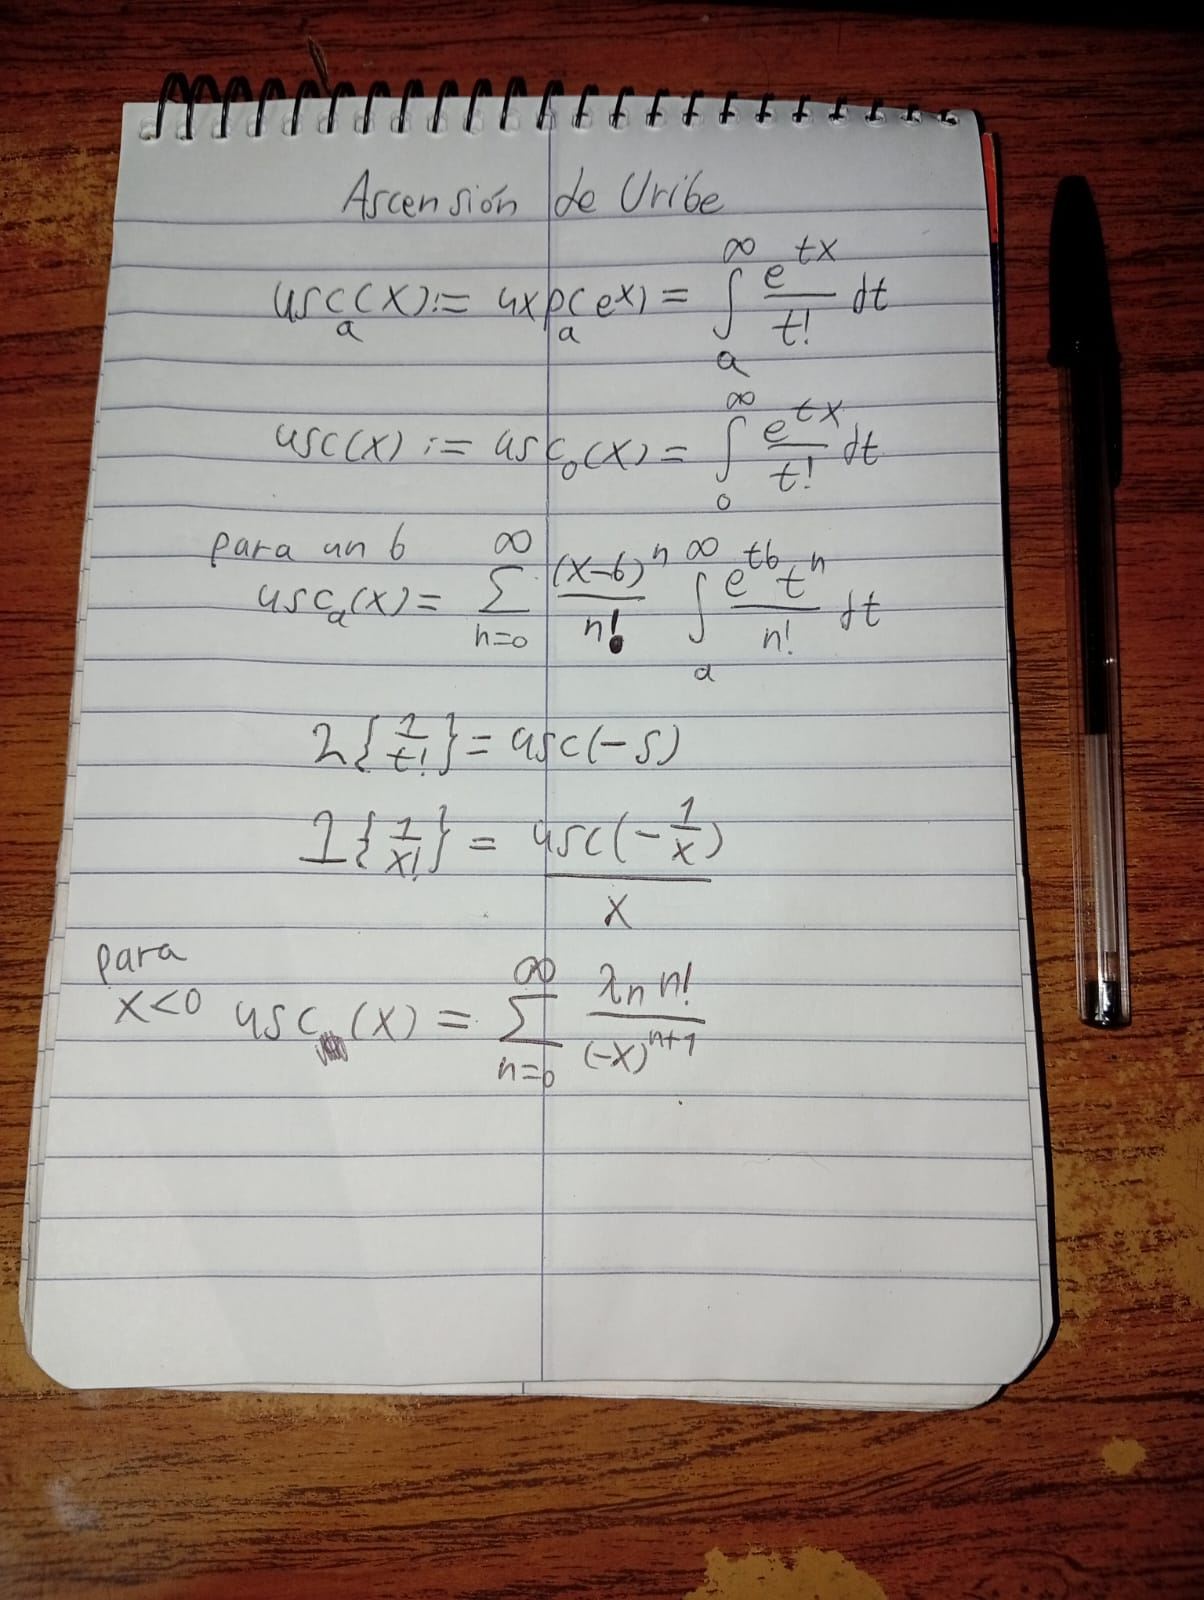 Ascensión de Uribe
usc_a(x) := uxp_a(e^x) = ∫_a^∞ e^{tx}/t! dt
usc(x) := usc_0(x) = ∫_0^∞ e^{tx}/t! dt
para un b
usc_a(x) = ∑_{n=0}^∞ (x-b)^n/n! ∫_a^∞ e^{tb} t^n/n! dt
L{1/t!} = usc(-s)
1{1/x!} = usc(-1/x)/x
para
x<0 usc(x) = ∑_{n=0}^∞ λ_n n!/(-x)^{n+1}